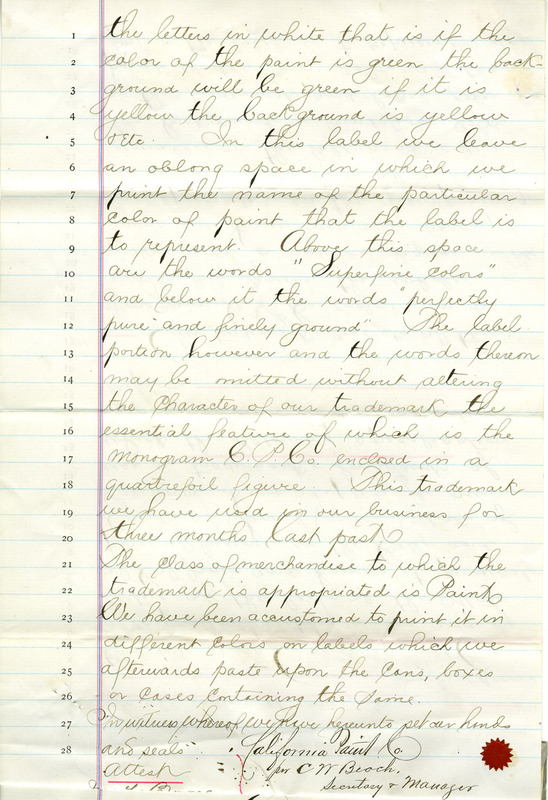 1 the letters in white that is if the
2 color of the paint is green the back-
3 ground will be green if it is
4 yellow the background is yellow
5 &Etc. In this label we leave
6 an oblong space in which we
7 print the name of the particular
8 color of paint that the label is
9 to represent. Above this space
10 are the words "Superfine Colors"
11 and below it the words "perfectly
12 pure and finely ground" The label
13 portion however and the words thereon
14 may be omitted without altering
15 the character of our trademark the
16 essential feature of which is the
17 monogram C. P. Co. enclosed in a
18 quatrefoil figure. This trademark
19 we have used in our business for
20 three months last past.
21 The class of merchandise to which the
22 trademark is appropriated is Paint
23 We have been accustomed to print it in
24 different colors on labels which we
25 afterwards paste upon the cans, boxes
26 or cases containing the same.
27 In witness whereof we have hereunto set our hands
28 and seals California Paint Co.
Attest per C W Beach.
Secretary & Manager